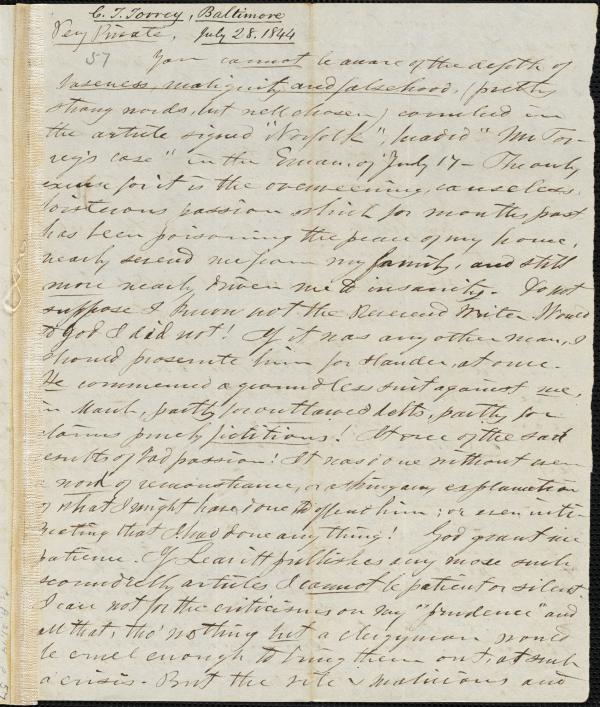 C. T. Torrey, Baltimore
Very Private, July 28. 1844
57
You cannot be aware of the depth of
baseness, malignity and falsehood, (pretty
strong words, but well chosen) couched in
the article signed "Norfolk", headed "Mr Tor-
rey's case" in the Eman. of July 17 - The only
excuse for it is the overweening, causeless,
boisterous passion which for months past
has been poisoning the peace of my home,
nearly severed me from my family, and still
more nearly driven me to insanity. Do not
suppose I know not the Reverend Writer. Would
to God I did not! If it was any other man, I
should prosecute him for slander, at once.
He commenced a groundless suit against me,
in March, partly for outlawed debts, partly for
claims purely fictitious! It one of the sad
results of bad passion! It was done without even
a word of remonstrance, or asking any explanation
of what I might have done to offend him; or even inti-
mating that I had done any thing! God grant me
patience. If Leavitt publishes any more such
scoundrelly articles I cannot be patient or silent.
I care not for the criticisms on my "prudence" and
all that, tho' nothing but a clergyman would
be cruel enough to bring them out, at such
a crisis. But the vile & malicious and